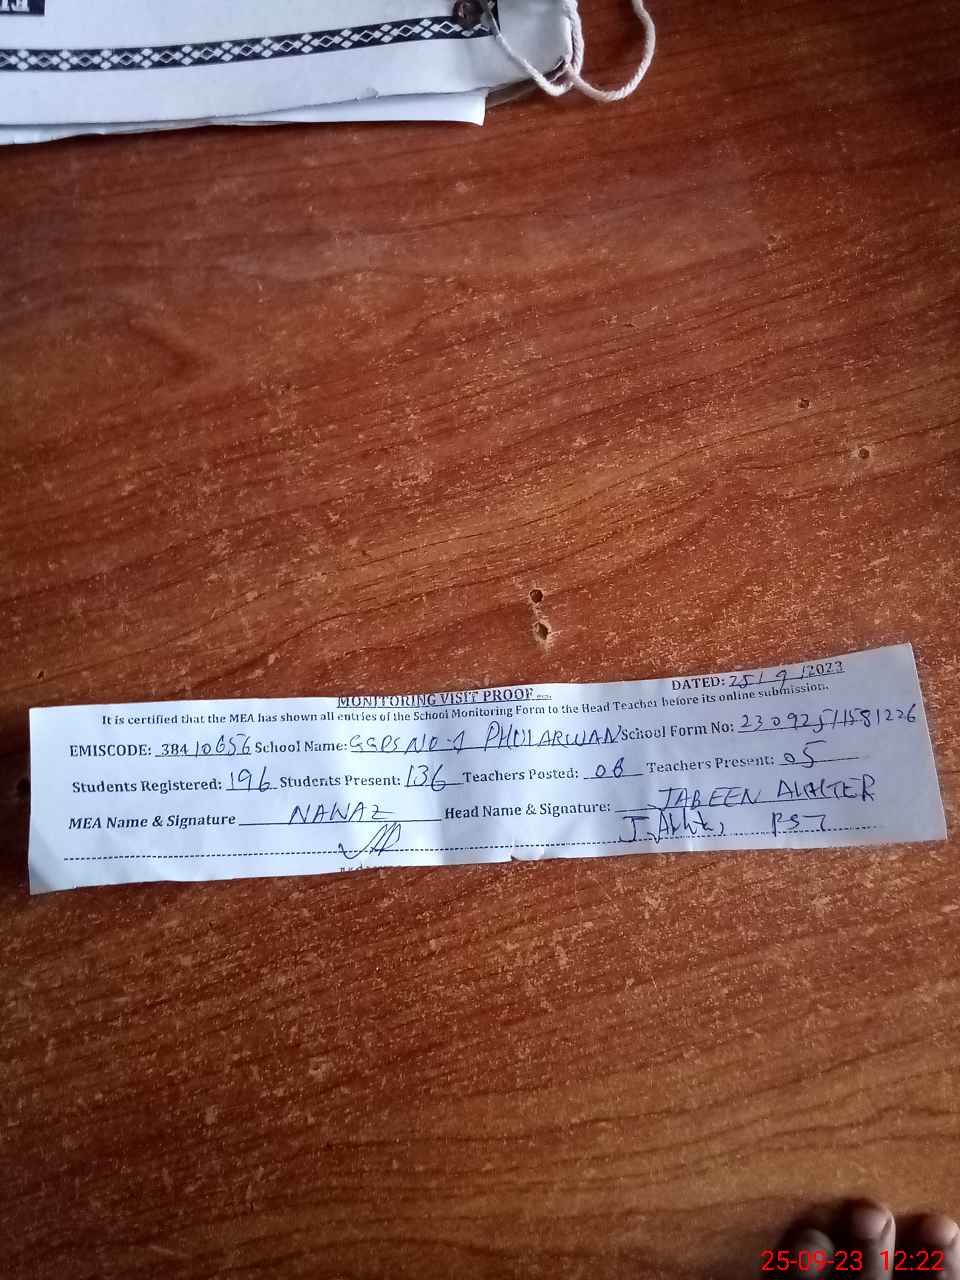 MONITORING VISIT PROOF
DATED: 25/9/2023
It is certified that the MEA has shown all entries of the School Monitoring Form to the Head Teacher before its online submission.
EMISCODE: 38410656 School Name: GGPS NO-1 PHULARWAN School Form No: 230925/1581226
Students Registered: 196 Students Present: 136 Teachers Posted: 06 Teachers Present: 05
MEA Name & Signature NAWAZ Head Name & Signature: JABEEN AKHTER
J. Akhter, PST
25-09-23 12:22